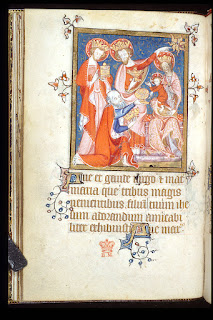 Aue et gaude uirgo et mat
maria que tribus magis
uenientibus. filium tuum ihe
sum adorandum amicabi
liter exhibuisti Aue mar